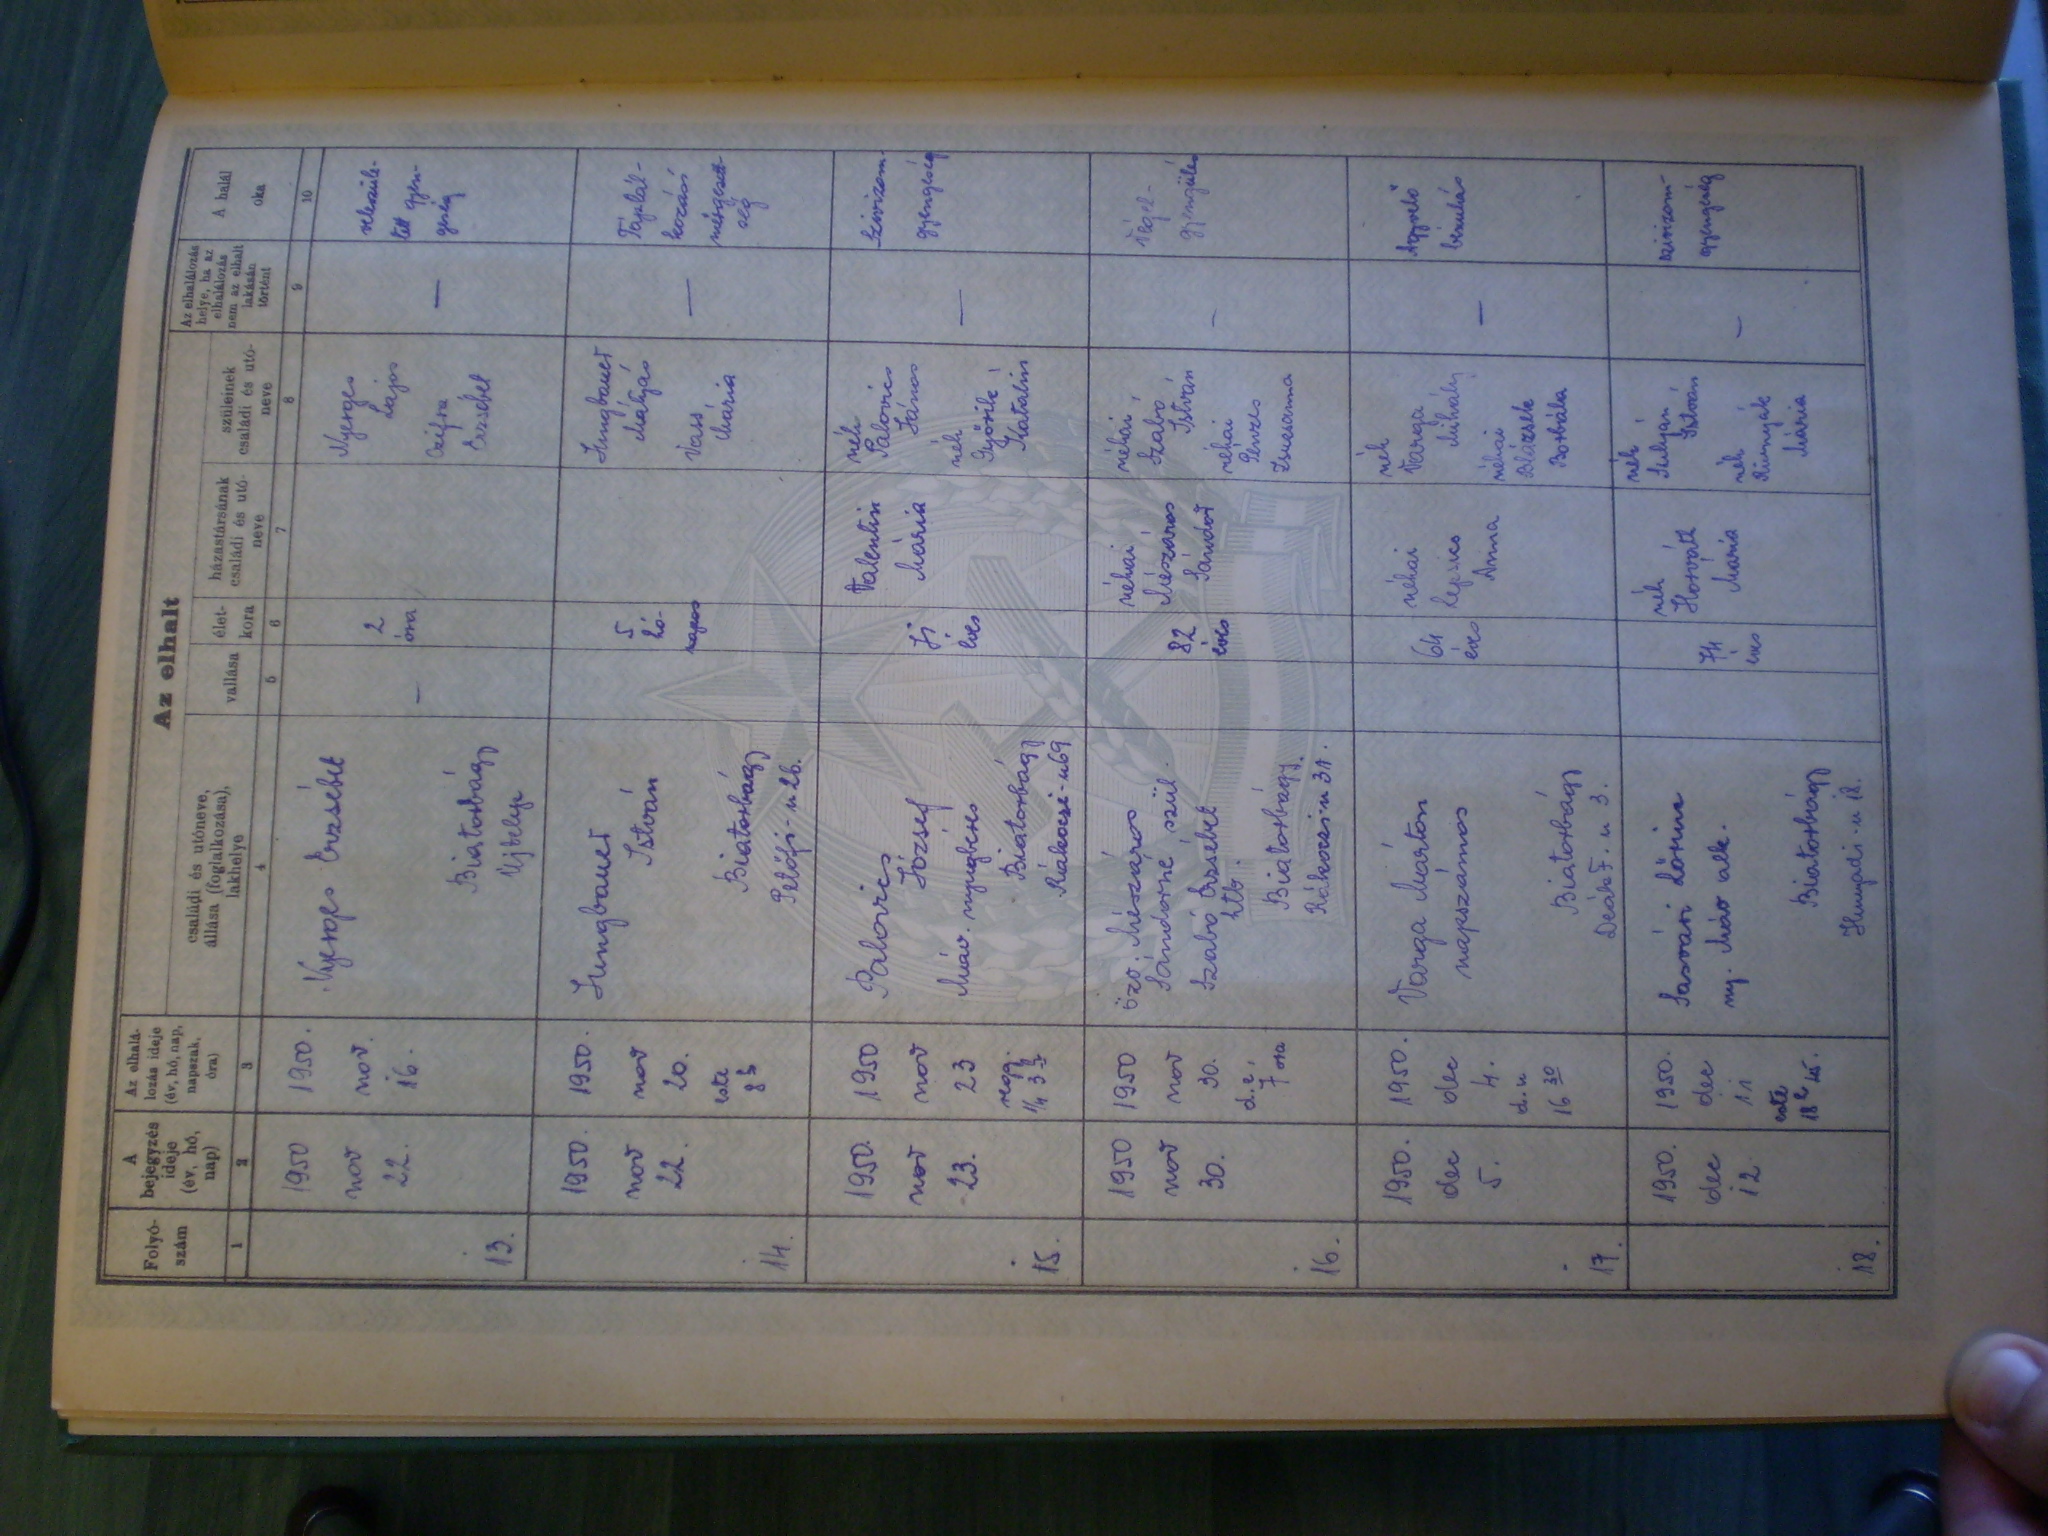 Az elhalt
Folyó-
szám
A
bejegyzés
ideje
(év, hó,
nap)
Az elhalá-
lozás ideje
(év, hó, nap,
napszak,
óra)
családi és utóneve,
állása (foglalkozása),
lakhelye
vallása
élet-
kora
házastársának
családi és utó-
neve
szüleinek
családi és utó-
neve
Az elhalálozás
helye, ha az
elhalálozás
nem az elhalt
lakásán
történt
A halál
oka
1 2 3 4 5 6 7 8 9 10
13.
1950
nov
22.
1950.
nov.
16.
Nyerges Erzsébet
Biatorbágy
Ujhelyi
—
2
óra
Nyerges
Lajos
Csifra
Erzsébet
—
veleszüle-
tett gyen-
geség
14.
1950.
nov
22.
1950.
nov
20.
este
8 h
Jungbauer
István
Biatorbágy
Petőfi-u 26.
5
hó-
napos
Jungbauer
Mátyás
Vass
Mária
—
Táplál-
kozási
mérgezett-
ség
15.
1950.
nov
23.
1950
nov
23
regg.
1/4 3
Palovics
József
Máv. nyugbéres
Biatorbágy
Rákóczi-u 69
éves
Valentin
Mária
néh
Palovics
János
néh
Györike
Katalin
—
Szivizom-
gyengeség
16.
1950
nov
30.
1950
nov
30.
d.e.
7 óra
özv. Mészáros
Sándorné szül.
Szabó Erzsébet
htb.
Biatorbágy.
Rákóczi u 31.
82
éves
néhai
Mészáros
Sándor
néhai
Szabó
István
néhai
Penzes
Zsuzsanna
—
Végel-
gyengülés
17.
1950.
dec
5.
1950.
dec
4.
d.u
16 30
Varga Márton
napszámos
Biatorbágy
Deák F. u 3.
64
éves
néhai
Anna
néh
Varga
Mihály
néhai
Blázsek
Borbála
—
Agyvelő
bénulás
18.
1950.
dec
12
1950.
dec
11
este
18 h 45.
Sasvári Lőrinc
ny. Máv alk.
Biatorbágy
Hunyadi-u 18.
74
éves
néh
Horváth
Mária
néh
István
néh
Mária
—
szivizom-
gyengeség